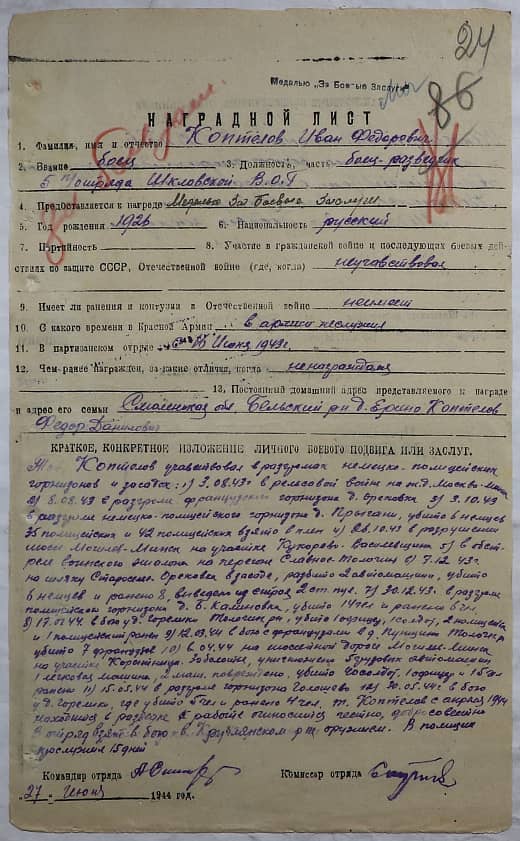 24
Медалью „За Боевые Заслуги"
86
НАГРАДНОЙ ЛИСТ
1. Фамилия, имя и отчество Коптелов Иван Федорович
2. Звание боец 3. Должность, часть боец-разведчик
5 отряда Шкловской В.О.Г
4. Представляется к награде Медалью За Боевые Заслуги
5. Год рождения 1926 6. Национальность русский
7. Партийность 8. Участие в гражданской войне и последующих боевых дей-
ствиях по защите СССР, Отечественной войне (где, когда) неучавствовал
9. Имеет ли ранения и контузии в Отечественной войне неимеет
10. С какого времени в Красной Армии в армии неслужил
11. В партизанском отряде с Июня 1943г.
12. Чем ранее награжден, за какие отличия, когда ненаграждался
13. Постоянный домашний адрес представляемого к награде
и адрес его семьи Смоленская обл Бельский р-н д. Ерино Коптелов
Федор Данилович
КРАТКОЕ, КОНКРЕТНОЕ ИЗЛОЖЕНИЕ ЛИЧНОГО БОЕВОГО ПОДВИГА ИЛИ ЗАСЛУГ.
Коптелов учавствовал в разгромах немецко-полицейских
гарнизонов и засадах: 1) 3.08.43г в рельсовой войне на ж.д. Москва-Минск
2) 8.08.43 в разгроме французского гарнизона д. Ореховка 3) 3.10.43
в разгроме немецко-полицейского гарнизона д. Прыгани, убито 6 немцев
35 полицейских и 42 полицейских взято в плен 4) 28.10.43 в разрушении
шоссе Могилев-Минск на участке Кукарево-Василевщина 5) в обст-
реле воинского эшелона на перегон Славное-Толочин 6) 7.12.43г
на шляху Староселье Ореховка в засаде, разбито 2 автомашины, убито
6 немцев и ранено 8, выведен из строя 2 ст. пул. 7) 30.12.43г. в разгроме
полицейского гарнизона д. Б. Калиновка, убито 14 чел и ранено 6 чел.
8) 17.01.44 в бою уд. Горелики Толочин р-н, убито 1 офицер, 1 солдат, 2 полицейских
и 1 полицейский ранен 9) 12.03.44 в бою с французами в д. Пунищи Толочин р-н
убито 7 французов 10) в 04.44 на шоссейной дороге Могилев-Минск
на участке Заболотье, уничтожено 5 грузовых автомашин
1 легковая машина, 2 маш. повреждено, убито солдат, 1 офицер и 15 чел
ранено 11) 15.05.44 в разгроме гарнизона Голошево 12) 30.05.44г в бою
уд. Горелики, где убито 5 чел и ранено 4 чел. т. Коптелов с апреля 1944
находился в разведке к работе относился честно, добросовестно
В отряд взят в бою в Круглянском р-не с оружием. В полиции
прослужил 15 дней
Командир отряда Комиссар отряда
„27" июня 1944 год.